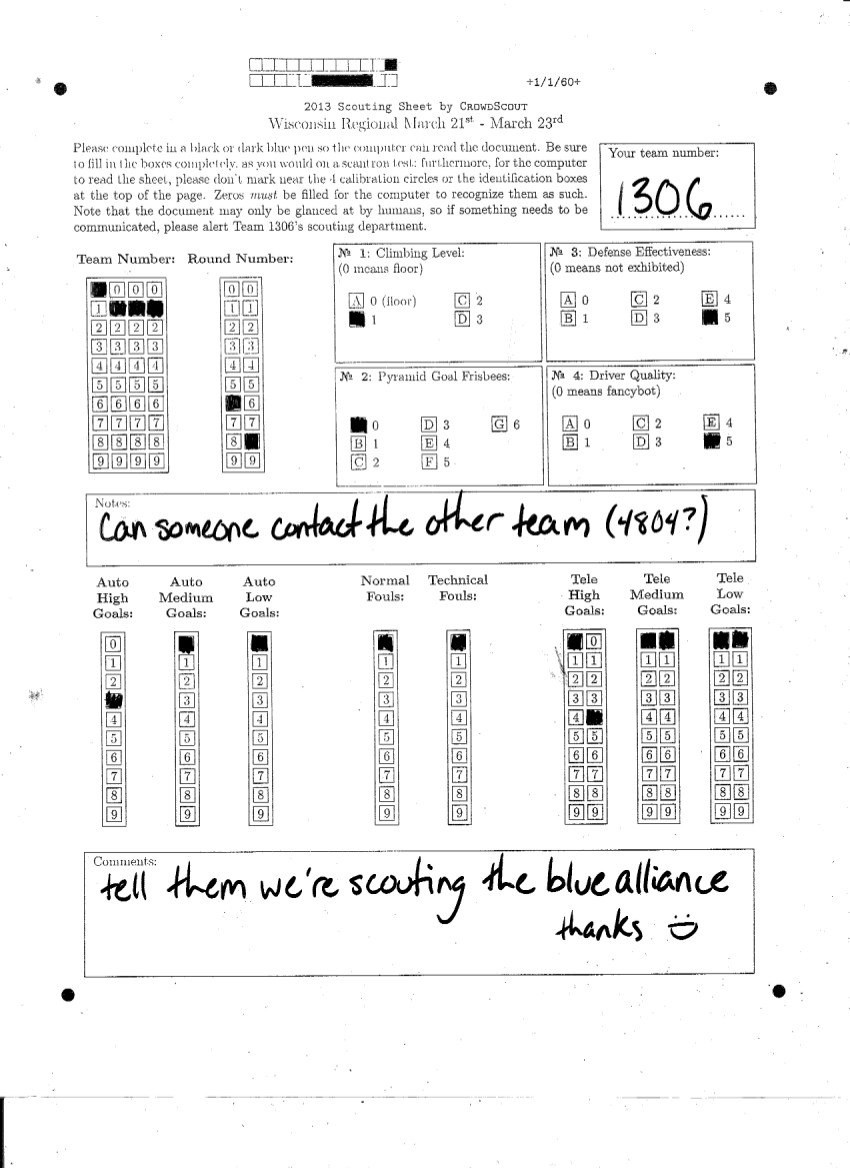 +1/1/60+
2013 Scouting Sheet by CrowdScout
Wisconsin Regional March 21st - March 23rd
Please complete in a black or dark blue pen so the computer can read the document. Be sure
to fill in the boxes completely, as you would on a scantron test; furthermore, for the computer
to read the sheet, please don't mark near the 4 calibration circles or the identification boxes
at the top of the page. Zeros must be filled for the computer to recognize them as such.
Note that the document may only be glanced at by humans, so if something needs to be
communicated, please alert Team 1306's scouting department.
Your team number:
1306
Team Number: Round Number:
0 0 0 0 0
1 1 1
2 2 2 2 2 2
3 3 3 3 3 3
4 4 4 4 4 4
5 5 5 5 5 5
6 6 6 6 6
7 7 7 7 7 7
8 8 8 8 8
9 9 9 9 9 9
№ 1: Climbing Level:
(0 means floor)
A 0 (floor) C 2
1 D 3
№ 3: Defense Effectiveness:
(0 means not exhibited)
A 0 C 2 E 4
B 1 D 3 5
№ 2: Pyramid Goal Frisbees:
0 D 3 G 6
B 1 E 4
C 2 F 5
№ 4: Driver Quality:
(0 means fancybot)
A 0 C 2 E 4
B 1 D 3 5
Notes:
Can someone contact the other team (4804?)
Auto High Goals:
0
1
2
4
5
6
7
8
9
Auto Medium Goals:
1
2
3
4
5
6
7
8
9
Auto Low Goals:
1
2
3
4
5
6
7
8
9
Normal Fouls:
1
2
3
4
5
6
7
8
9
Technical Fouls:
1
2
3
4
5
6
7
8
9
Tele High Goals:
0
1 1
2 2
3 3
4
5 5
6 6
7 7
8 8
9 9
Tele Medium Goals:
1 1
2 2
3 3
4 4
5 5
6 6
7 7
8 8
9 9
Tele Low Goals:
1 1
2 2
3 3
4 4
5 5
6 6
7 7
8 8
9 9
Comments:
tell them we're scouting the blue alliance
thanks